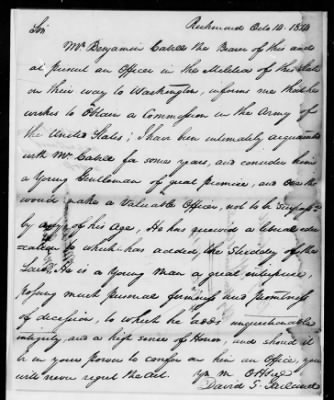 Richmond Octo 14 1814
Sir
Mr Benjamin Cabell the Bearer of this and
at present an Officer in the Militia of this State
on their way to Washington, informs me that he
wishes to Obtain a Commission in the Army of
the United States; I have been intimately acquainted
with Mr Cabell for some years, and consider him
a Young Gentleman of great promise, and
would make a Valuable Officer, not to be
by any of his Age, He has received a liberal edu
cation to which has added the Studdy of the
Law, He is a Young Man of great enterprise,
possessing much personal firmness and promptness
of decision, to which he adds unquestionable
integrity, and a high sense of Honor, and should it
be in your power to confer on him an Office, you
will never regret the Act
Yr m O H St
David S.